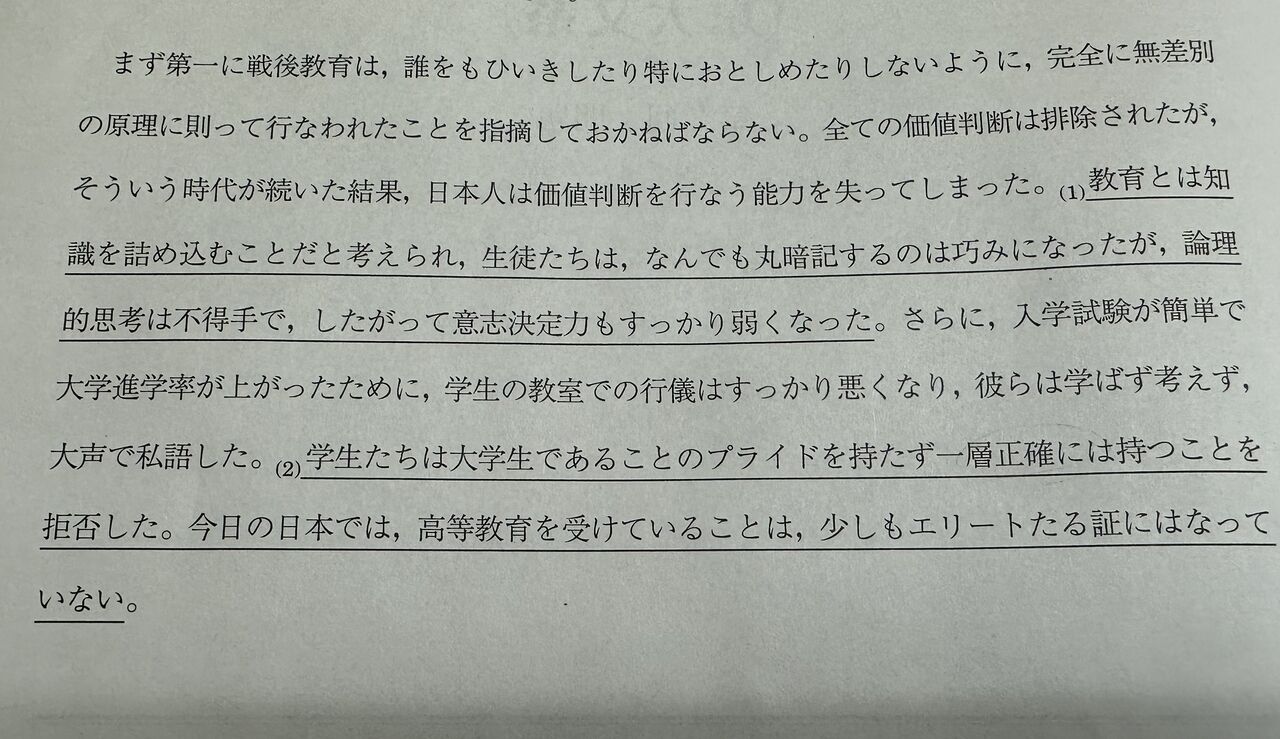 まず第一に戦後教育は，誰をもひいきしたり特におとしめたりしないように，完全に無差別
の原理に則って行なわれたことを指摘しておかねばならない。全ての価値判断は排除されたが，
そういう時代が続いた結果，日本人は価値判断を行なう能力を失ってしまった。(1)教育とは知
識を詰め込むことだと考えられ，生徒たちは，なんでも丸暗記するのは巧みになったが，論理
的思考は不得手で，したがって意志決定力もすっかり弱くなった。さらに，入学試験が簡単で
大学進学率が上がったために，学生の教室での行儀はすっかり悪くなり，彼らは学ばず考えず，
大声で私語した。(2)学生たちは大学生であることのプライドを持たず一層正確には持つことを
拒否した。今日の日本では，高等教育を受けていることは，少しもエリートたる証にはなって
いない。